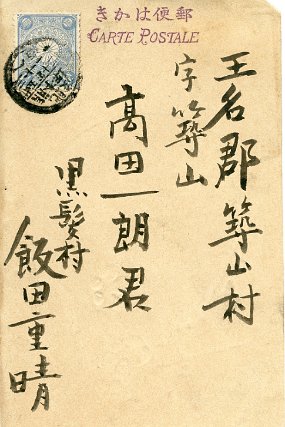 きかは便郵
CARTE POSTALE
玉名郡築山村
字築山
高田一朗君
黒髪村
飯田重晴